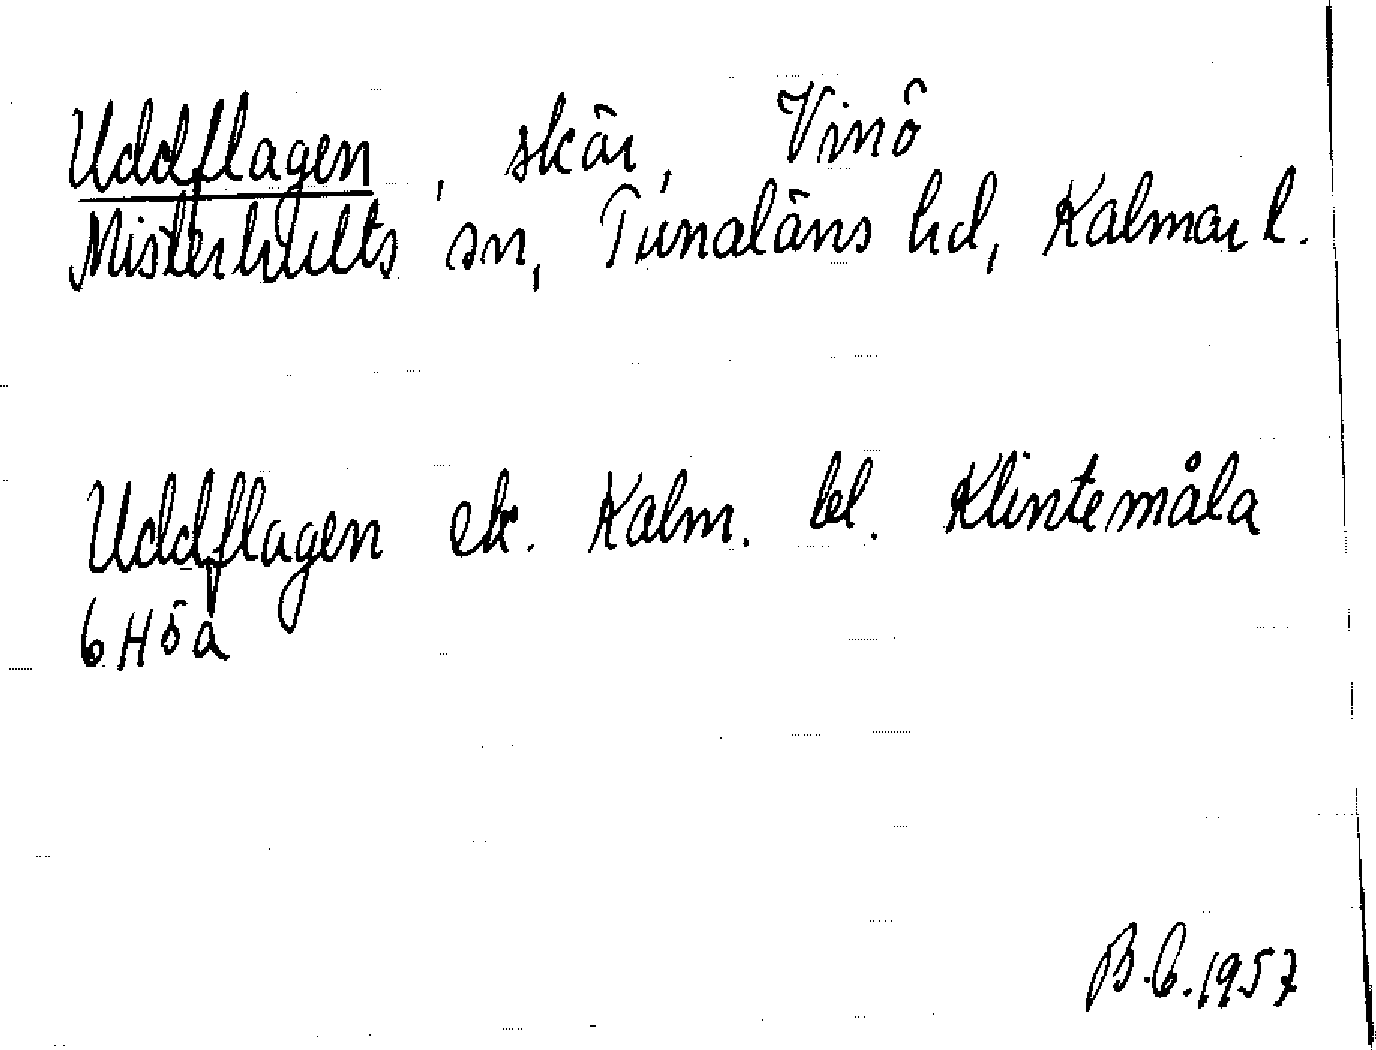 Uddflagen, skär, Vinö
Misterhults sn, Tunaläns hd, Kalmar l.
Uddflagen ek. Kalm. bl. Klintemåla
6H5a
B.C. 1957